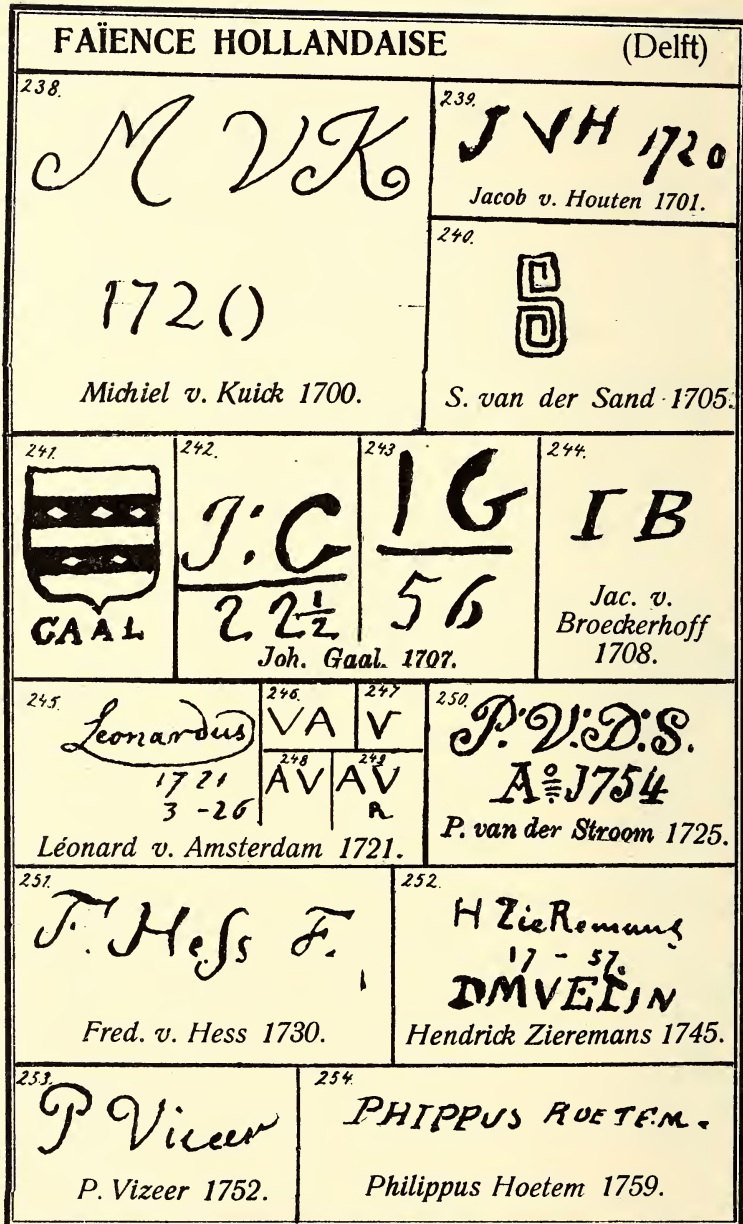 FAÏENCE HOLLANDAISE (Delft)
238.
M VK
1720
Michiel v. Kuick 1700.
239.
J VH 1720
Jacob v. Houten 1701.
240.
S
S. van der Sand 1705.
241.
GAAL
242.
J:G
22 1/2
243
IG
56
Joh. Gaal. 1707.
244.
I B
Jac. v.
Broeckerhoff
1708.
245.
Leonardus
1721
3 - 26
246.
VA
247
V
248
AV
249
AV
R
Léonard v. Amsterdam 1721.
250.
P:V:D:S.
Aº 1754
P. van der Stroom 1725.
251.
F. Hess F.
Fred. v. Hess 1730.
252.
H ZieRemans
17 - 57.
Hendrick Zieremans 1745.
253.
P Vizeer
P. Vizeer 1752.
254.
PHIPPUS
Philippus Hoetem 1759.